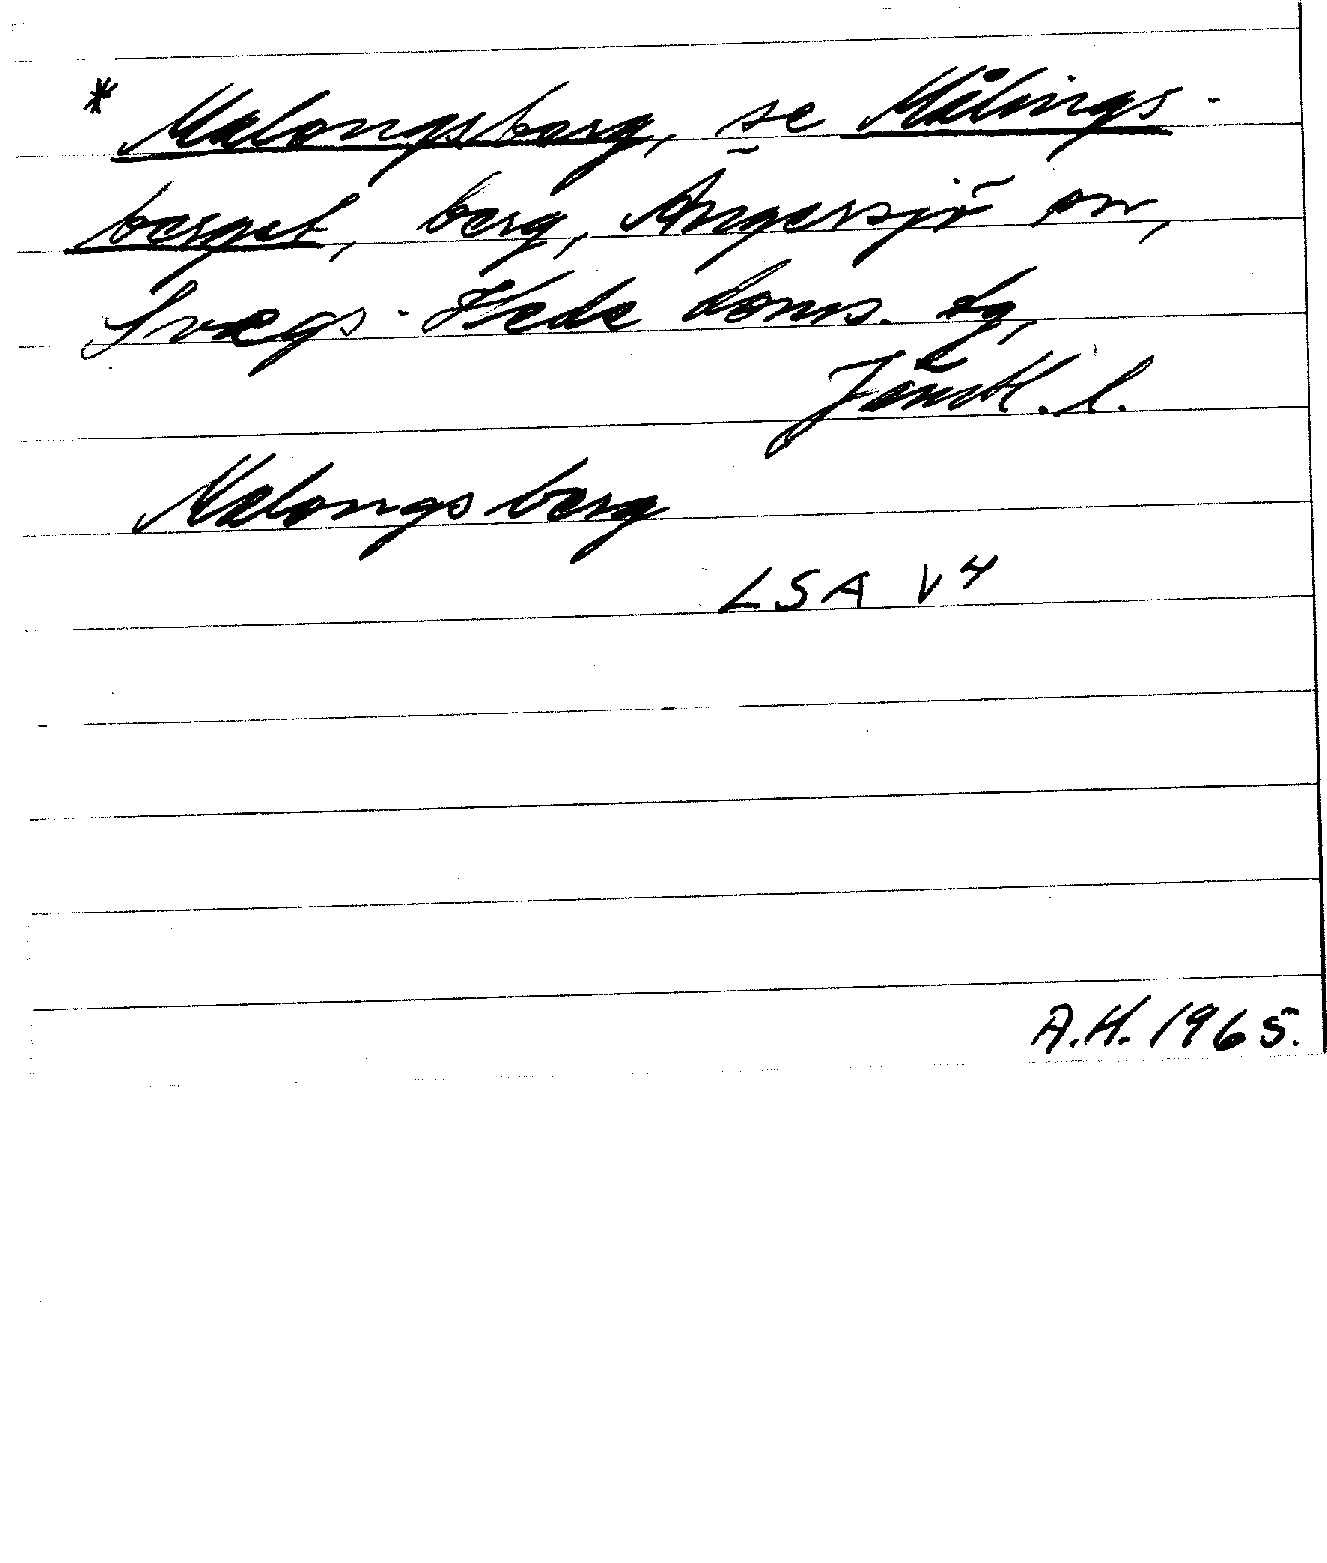 * Malongsberg, se Målings-
berget, berg, Ängersjö sn,
Svegs-Hede doms. tg,
Jämtl. l.
Malongsberg
LSA V4
A.H. 1965.